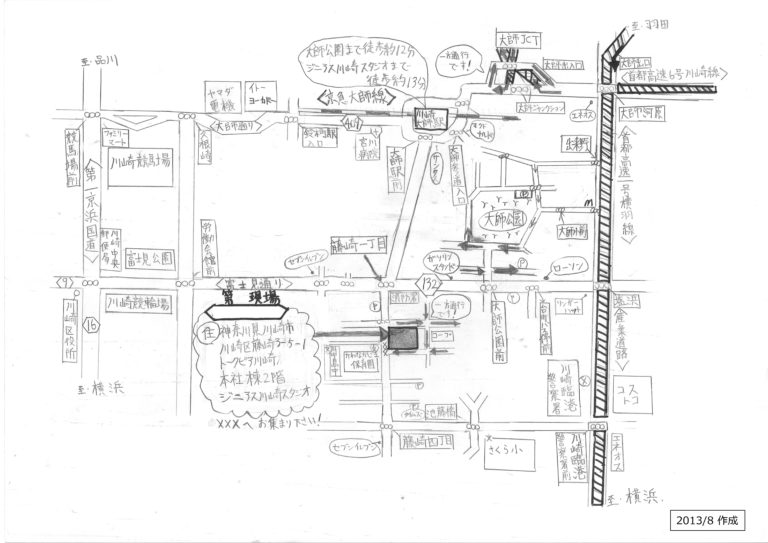 至・羽田
至・品川
大師公園まで徒歩約12分
ジニアス川崎スタジオまで
徒歩約13分
一方通行
です!
大師JCT
大師出入口
〈首都高速6号川崎線〉
ヤマダ
電機
イトー
ヨーカドー
〈京急大師線〉
川崎
大師駅
大師ジャンクション
エネオス
大師河原
競馬場前
ファミリー
マート
川崎競馬場
大師通り
409
鈴木町駅
入口
宮川
病院
大師駅前
出来野
〈第一京浜国道〉
〈首都高速一号横羽線〉
大師公園
富士見公園
労働会館前
セブンイレブン
藤崎一丁目
ガソリン
スタンド
P
ローソン
〈9〉
富士見通り
132
川崎競輪場
川崎区役所
15
第 現場
住
神奈川県川崎市
川崎区藤崎3-5-1
トークピア川崎
本社棟2階
ジニアス川崎スタジオ
XXXへお集まり下さい!
一方通行
です!
コープ
保育園
大師公園前
産業道路
川崎臨港
警察署
コスト
コ
至・横浜
セブンイレブン
藤崎四丁目
さくら小
川崎臨港
警察署前
エネオス
至・横浜
2013/8 作成